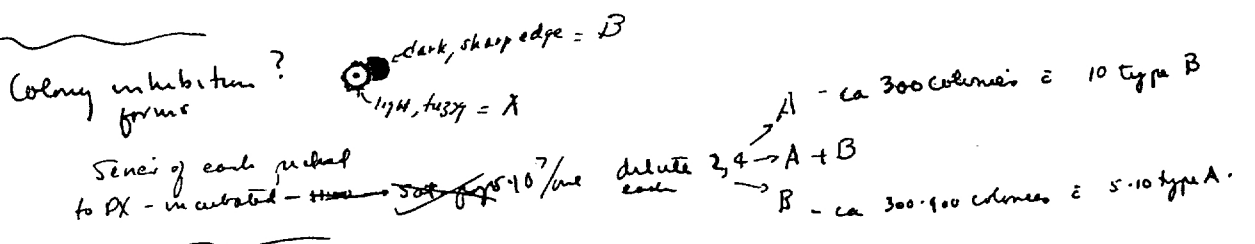 Colony inhibition forms ?
dark, sharp edge = B
light, fuzzy = A
Series of each picked
to PX - incubated - 5·10⁷/ml dilute 2,4 each
A - ca 300 colonies c̄ 10 type B
A + B
B - ca 300-400 colonies c̄ 5-10 type A.